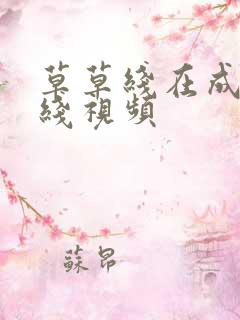 草草綫在成
綫視頻
蘇昂